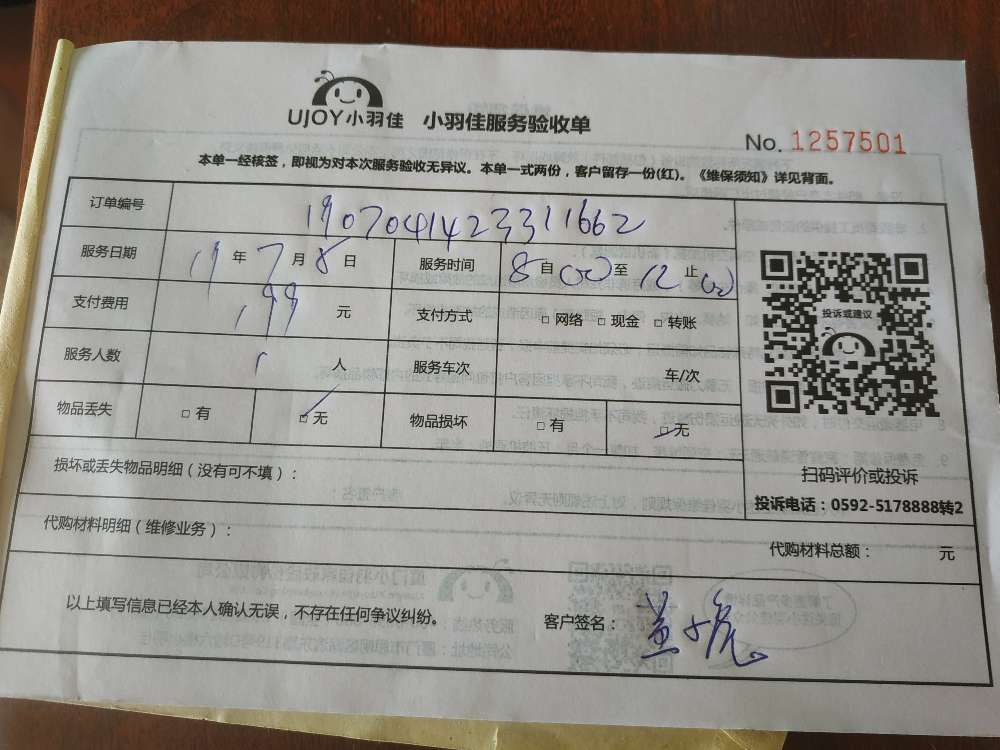 UJOY小羽佳 小羽佳服务验收单
No. 1257501
本单一经核签，即视为对本次服务验收无异议。本单一式两份，客户留存一份(红)。《维保须知》详见背面。
订单编号 1907041423311662
服务日期 19年7月8日 服务时间 8自(00)至12止(00)
支付费用 199元 支付方式 □网络 □现金 □转账
服务人数 1人 服务车次 车/次
物品丢失 □有 ☑无 物品损坏 □有 ☑无
投诉或建议
扫码评价或投诉
投诉电话：0592-5178888转2
损坏或丢失物品明细（没有可不填）：
代购材料明细（维修业务）： 代购材料总额： 元
以上填写信息已经本人确认无误，不存在任何争议纠纷。 客户签名：